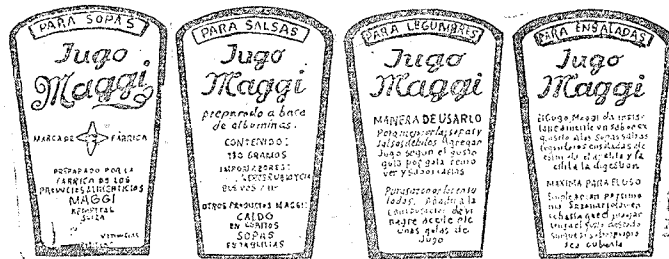 PARA SOPAS
Jugo
Maggi
MARCA DE FÁBRICA
PREPARADO POR LA
FABRICA DE LOS
PRODUCTOS ALIMENTICIOS
MAGGI
KEMPTTAL
SUIZA
PARA SALSAS
Jugo
Maggi
preparado a base
de albuminas.
CONTENIDO:
130 GRAMOS
IMPORTADORES:
OTROS PRODUCTOS MAGGI:
CALDO
EN CUBITOS
SOPAS
EN TABLILLAS
PARA LEGUMBRES
Jugo
Maggi
MANERA DE USARLO
Para mejorar las sopas y
salsas débiles Agregar
Jugo segun el gusto
gota por gota remo
ver y saborearlas
Para sazonar las ensa
ladas. Añadir a la
composición de vi
nagre aceite etc
unas gotas de
Jugo
PARA ENSALADAS
Jugo
Maggi
El Jugo Maggi da instan
taneamente un sabor ex
quisito a las Sopas salsas
legumbres ensaladas etc
estimula el apetito y fa
cilita la digestion
MAXIMA PARA EL USO